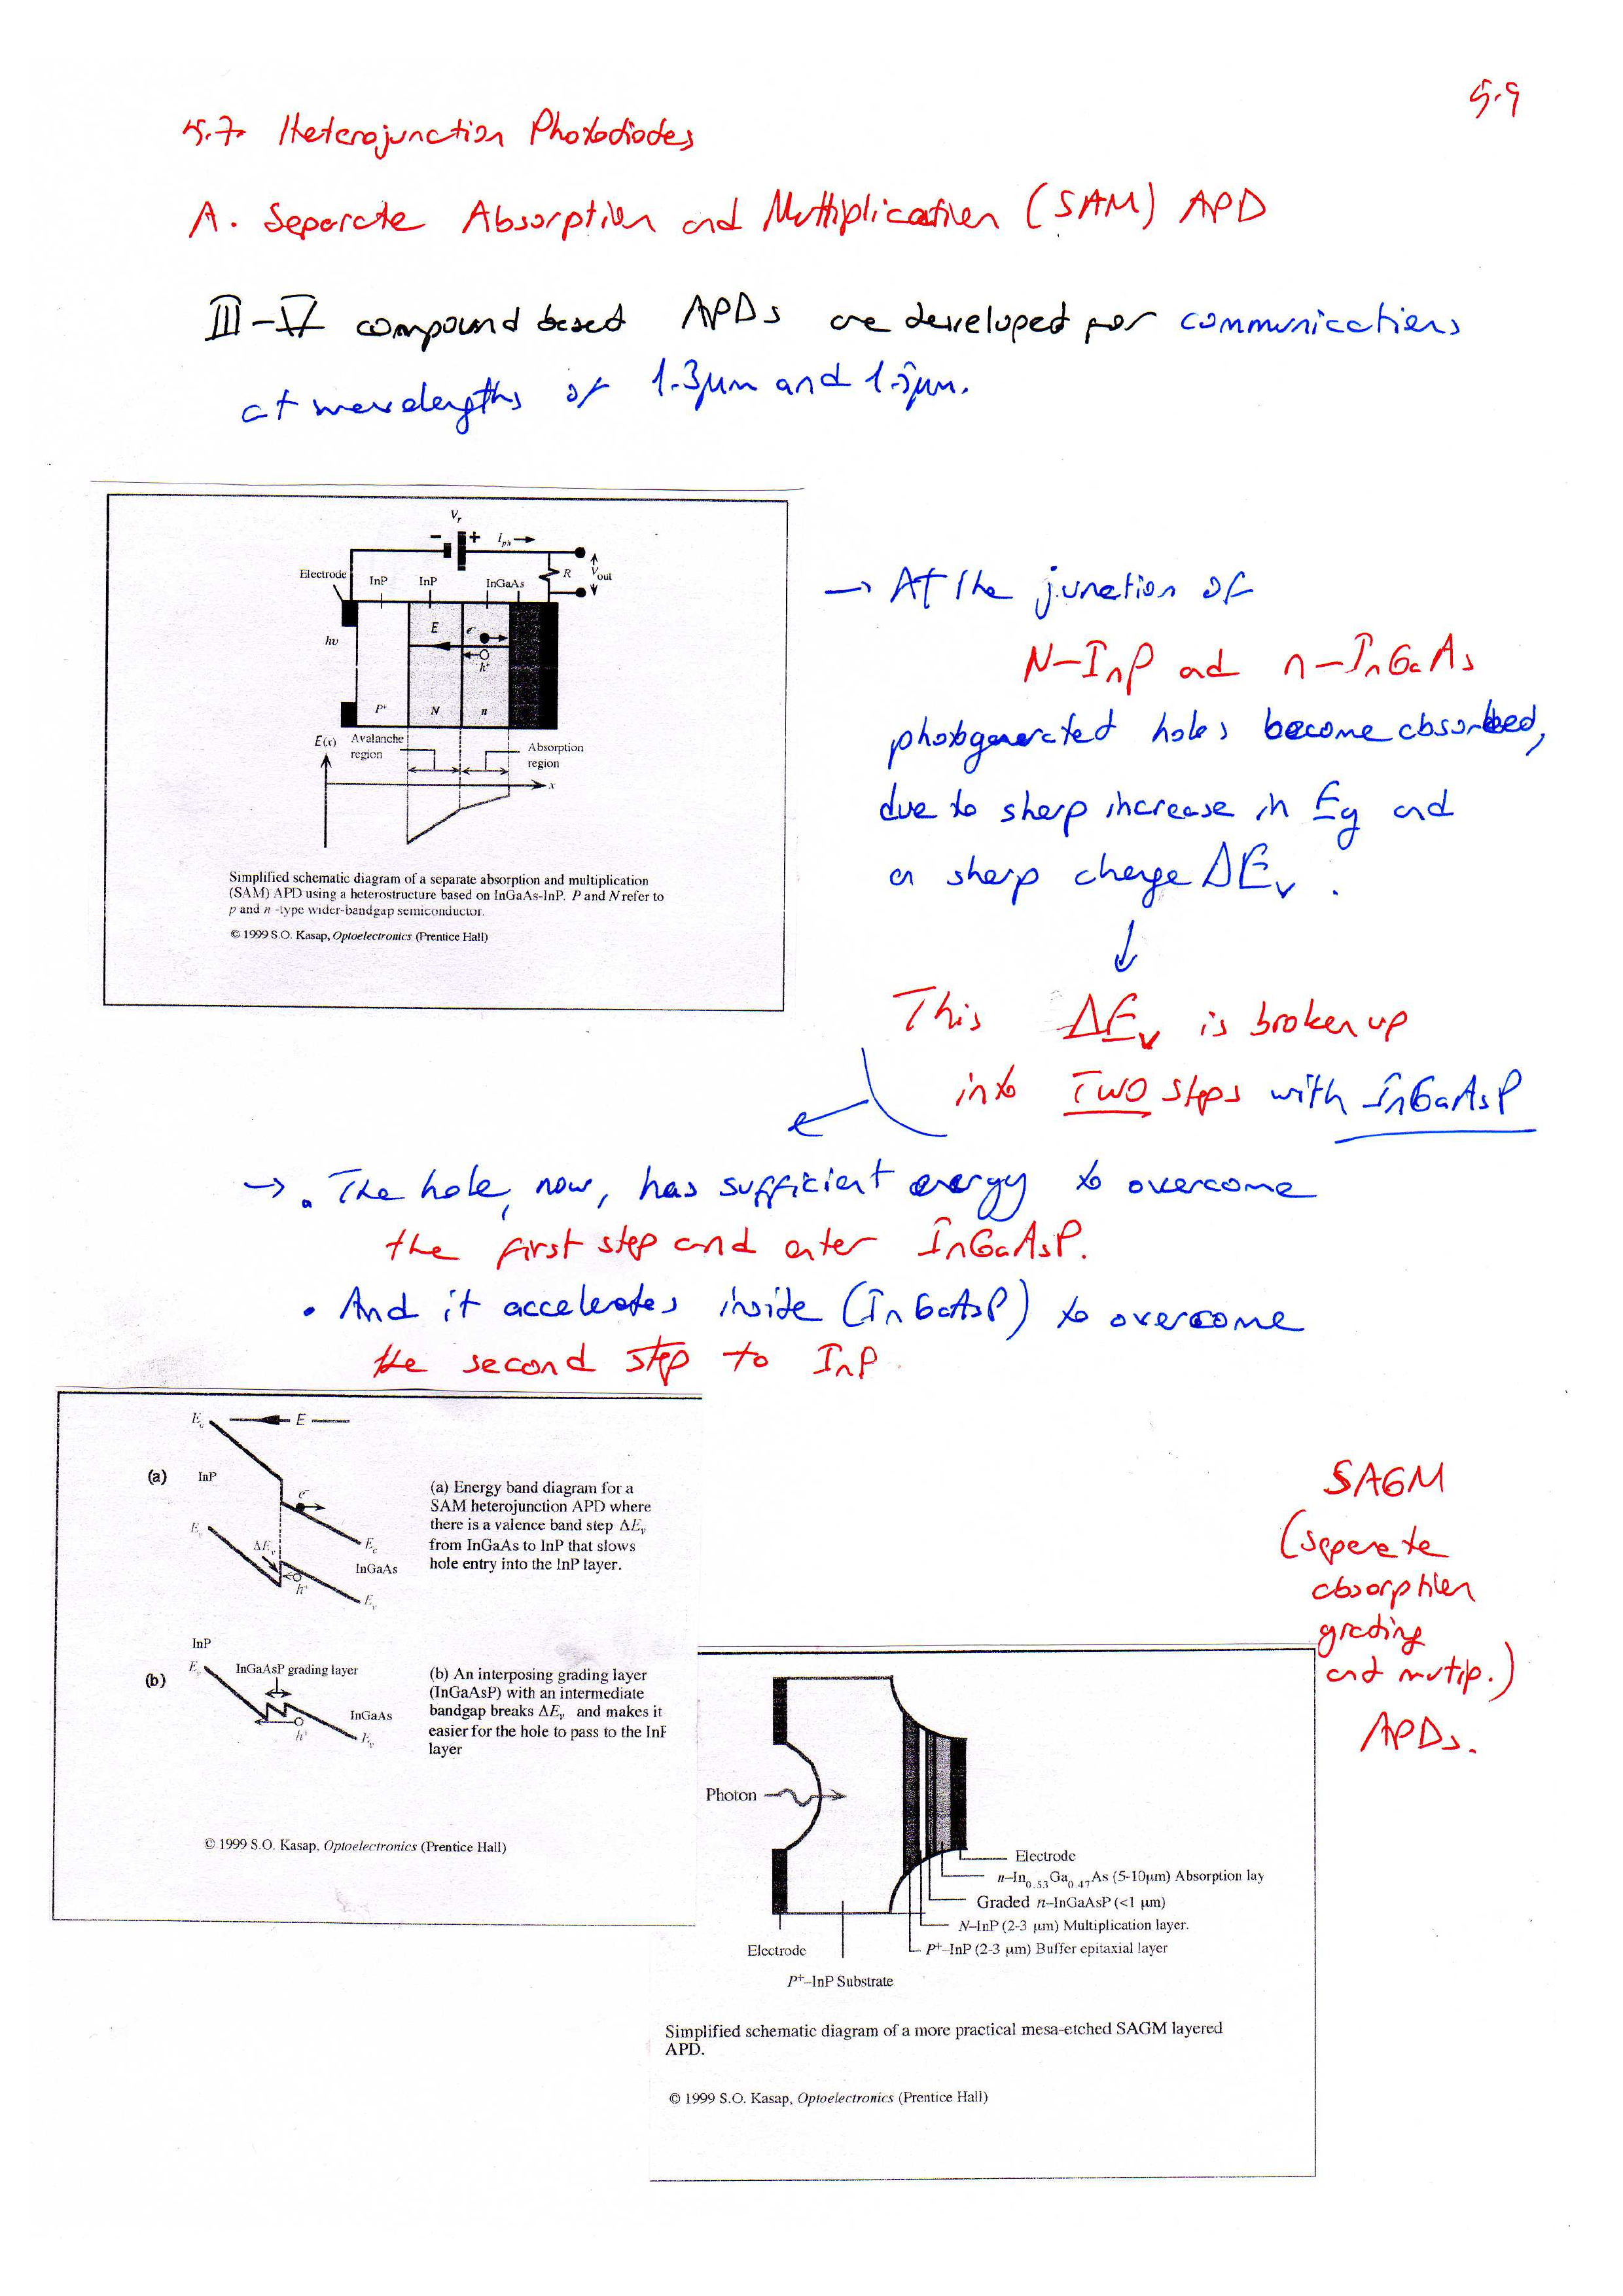 5.9
5.7. Heterojunction Photodiodes
A. Separate Absorption and Multiplication (SAM) APD
III-V compound based APDs are developed for communications
at wavelengths of 1.3μm and 1.5μm.
Vr
- + iph
Electrode InP InP InGaAs R Vout
hυ E e-
h+
P+ N n
E(x) Avalanche region Absorption region
x
Simplified schematic diagram of a separate absorption and multiplication
(SAM) APD using a heterostructure based on InGaAs-InP. P and N refer to
p and n -type wider-bandgap semiconductor.
© 1999 S.O. Kasap, Optoelectronics (Prentice Hall)
→ At the junction of
N-InP and n-InGaAs
photogenerated holes become absorbed,
due to sharp increase in Eg and
a sharp change ΔEv.
↓
This ΔEv is broken up
into TWO steps with InGaAsP
→ . The hole, now, has sufficient energy to overcome
the first step and enter InGaAsP.
• And it accelerates inside (InGaAsP) to overcome
the second step to InP.
Ec E
(a) InP
e-
Ev
ΔEv Ec
InGaAs
h+
Ev
(a) Energy band diagram for a
SAM heterojunction APD where
there is a valence band step ΔEv
from InGaAs to InP that slows
hole entry into the InP layer.
InP
Ev InGaAsP grading layer
(b)
InGaAs
h+ Ev
(b) An interposing grading layer
(InGaAsP) with an intermediate
bandgap breaks ΔEv and makes it
easier for the hole to pass to the InP
layer
© 1999 S.O. Kasap, Optoelectronics (Prentice Hall)
SAGM
(seperate
absorption
grading
and mutip.)
APDs.
Photon
Electrode
n-In0.53Ga0.47As (5-10μm) Absorption lay
Graded n-InGaAsP (<1 μm)
N-InP (2-3 μm) Multiplication layer.
P+-InP (2-3 μm) Buffer epitaxial layer
Electrode
P+-InP Substrate
Simplified schematic diagram of a more practical mesa-etched SAGM layered
APD.
© 1999 S.O. Kasap, Optoelectronics (Prentice Hall)